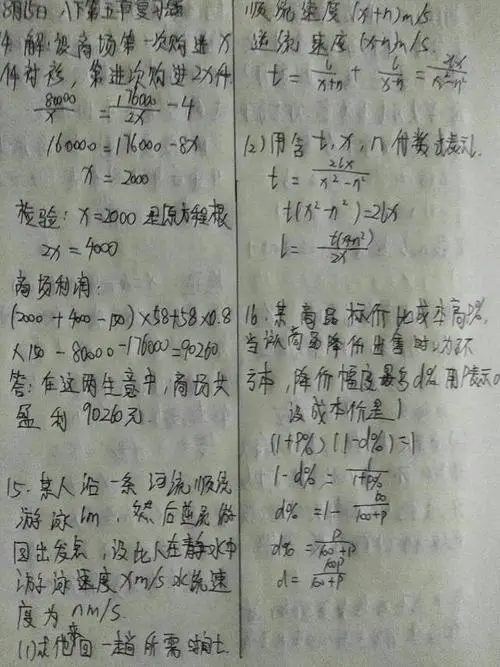 8月15日 八下第五节复习
14.解:设商场第一次购进x
件衬衫,第二次购进2x件.
80000/x = 176000/2x - 4
160000 = 176000 - 8x
x = 2000
检验: x=2000 是原方程根
2x = 4000
商场利润:
(2000 + 4000 - 150) × 58 + 58 × 0.8
× 150 - 80000 - 176000 = 90260
答:在这两生意中,商场共
盈利 90260元.
15.某人沿一条河流顺流
游泳lm,然后逆流游
回出发点,设此人在静水中
游泳速度xm/s 水流速
度为nm/s.
(1)求他来回一趟所需时间t.
顺流速度(x+n)m/s
逆流速度(x-n)m/s.
t = l/x+n + l/x-n = 2lx/x²-n²
(2)用含t,x,n代数式表示l.
t = 2lx/x²-n²
t(x²-n²) = 2lx
l = /2x
16.某商品标价比成本高P%,
当该商品降价出售时,为不
亏本,降价幅度最多d% 用P表示d
设成本价是1
(1+P%)(1-d%)=1
1-d% = 1/1+P%
d% = 1- 100/100+P
d% = P/100+P
d = 100P/100+P